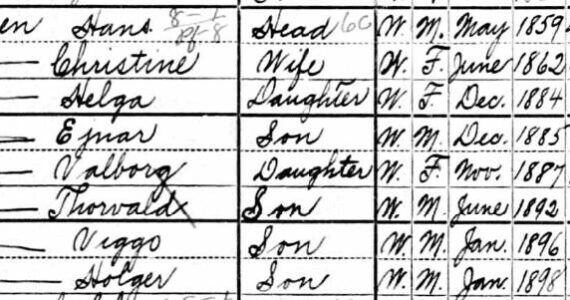 en Hans 8-1 Head 60 W. M. May 1859
Pf 8
— Christine Wife W. F. June 1862
— Helga Daughter W. F. Dec. 1884
— Ejnar Son W. M. Dec. 1885
— Valborg Daughter W. F. Nov. 1887
— Thorvald x Son W. M. June 1892
— Viggo Son W. M. Jan. 1896
— Holger Son W. M. Jan. 1898